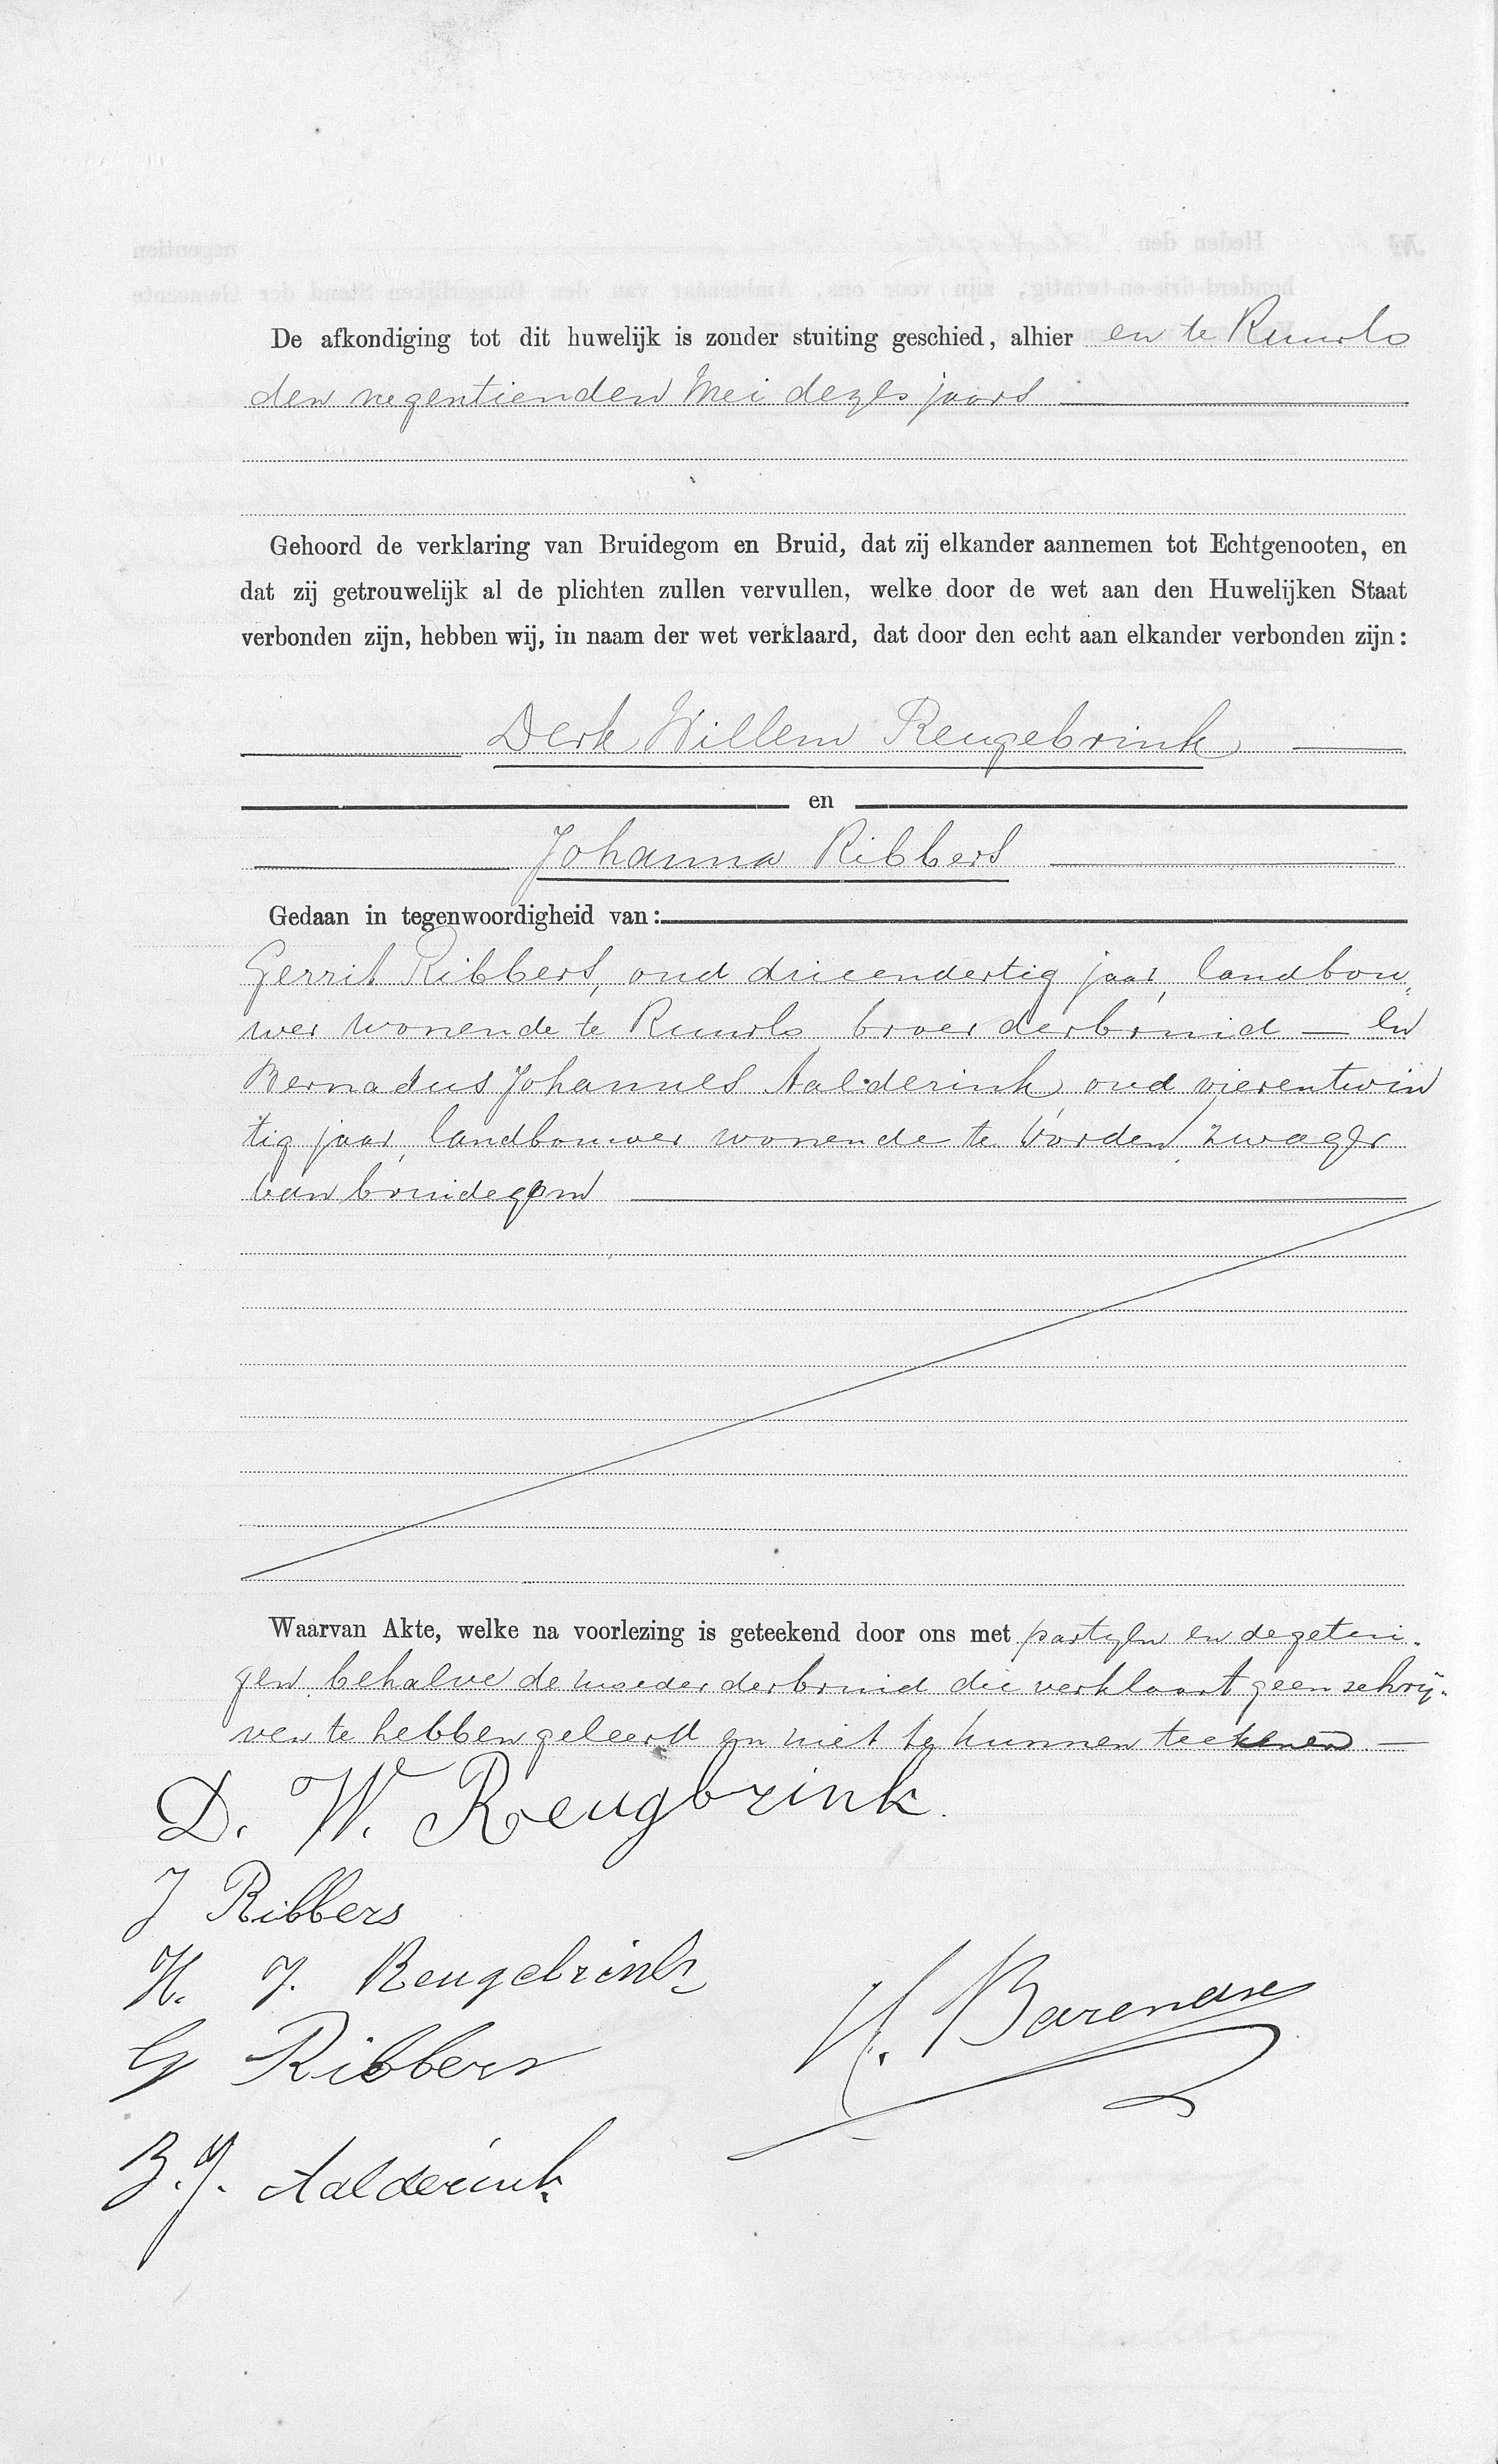 De afkondiging tot dit huwelijk is zonder stuiting geschied, alhier en te Ruurlo
den negentienden Mei dezes jaars
Gehoord de verklaring van Bruidegom en Bruid, dat zij elkander aannemen tot Echtgenooten, en
dat zij getrouwelijk al de plichten zullen vervullen, welke door de wet aan den Huwelijken Staat
verbonden zijn, hebben wij, in naam der wet verklaard, dat door den echt aan elkander verbonden zijn:
Derk Willem Reugebrink
en
Johanna Ribbers
Gedaan in tegenwoordigheid van:
Gerrit Ribbers, oud drieendertig jaar, landbou„
wer wonende te Ruurlo broer der bruid — en
Bernadus Johannes Aalderink oud vierentwin
tig jaar, landbouwer wonende te Vorden, zwager
van bruidegom
Waarvan Akte, welke na voorlezing is geteekend door ons met partijen en de getui-
gen behalve de moeder der bruid die verklaart geen schrij-
ven te hebben geleerd en niet te kunnen teekenen —
D. W. Reugbrink.
J Ribbers
H. J. Reugebrink
G Ribbers
H. Barendse
B. J. Aalderink